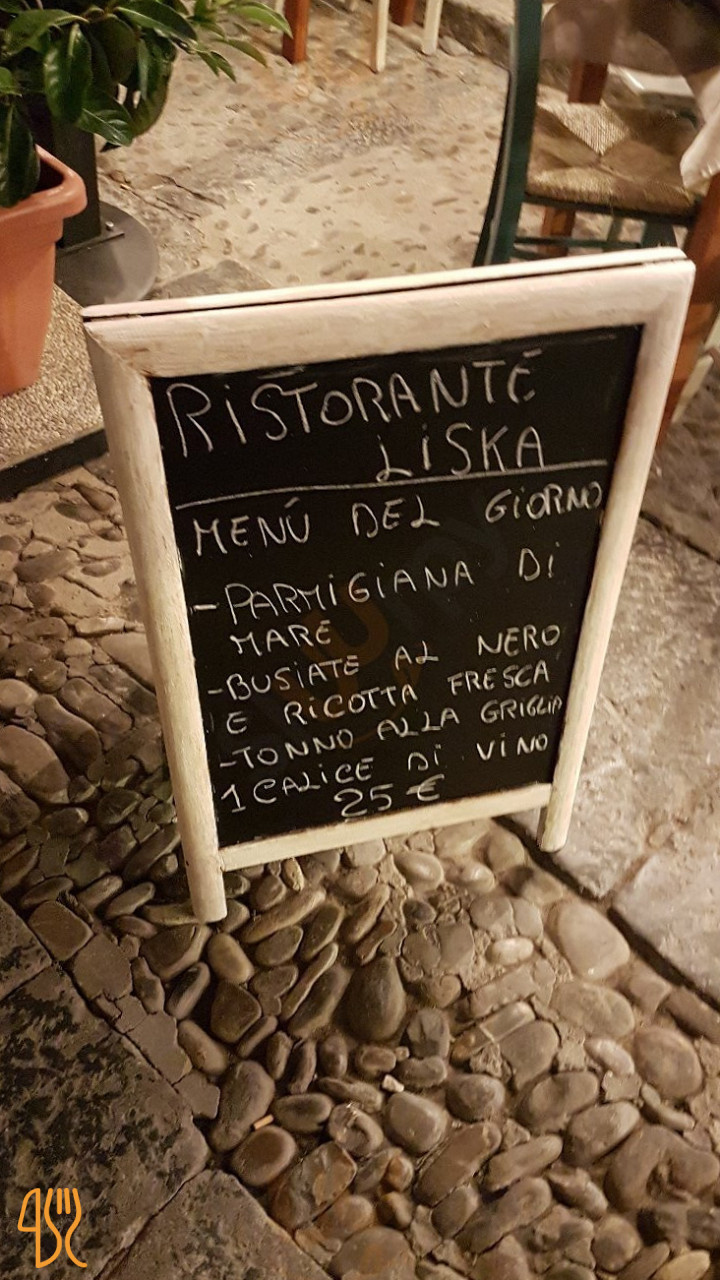 RISTORANTE
LISKA
MENÚ DEL GIORNO
- PARMIGIANA DI
MARE
- BUSIATE AL NERO
E RICOTTA FRESCA
- TONNO ALLA GRIGLIA
1 CALICE DI VINO
25 €